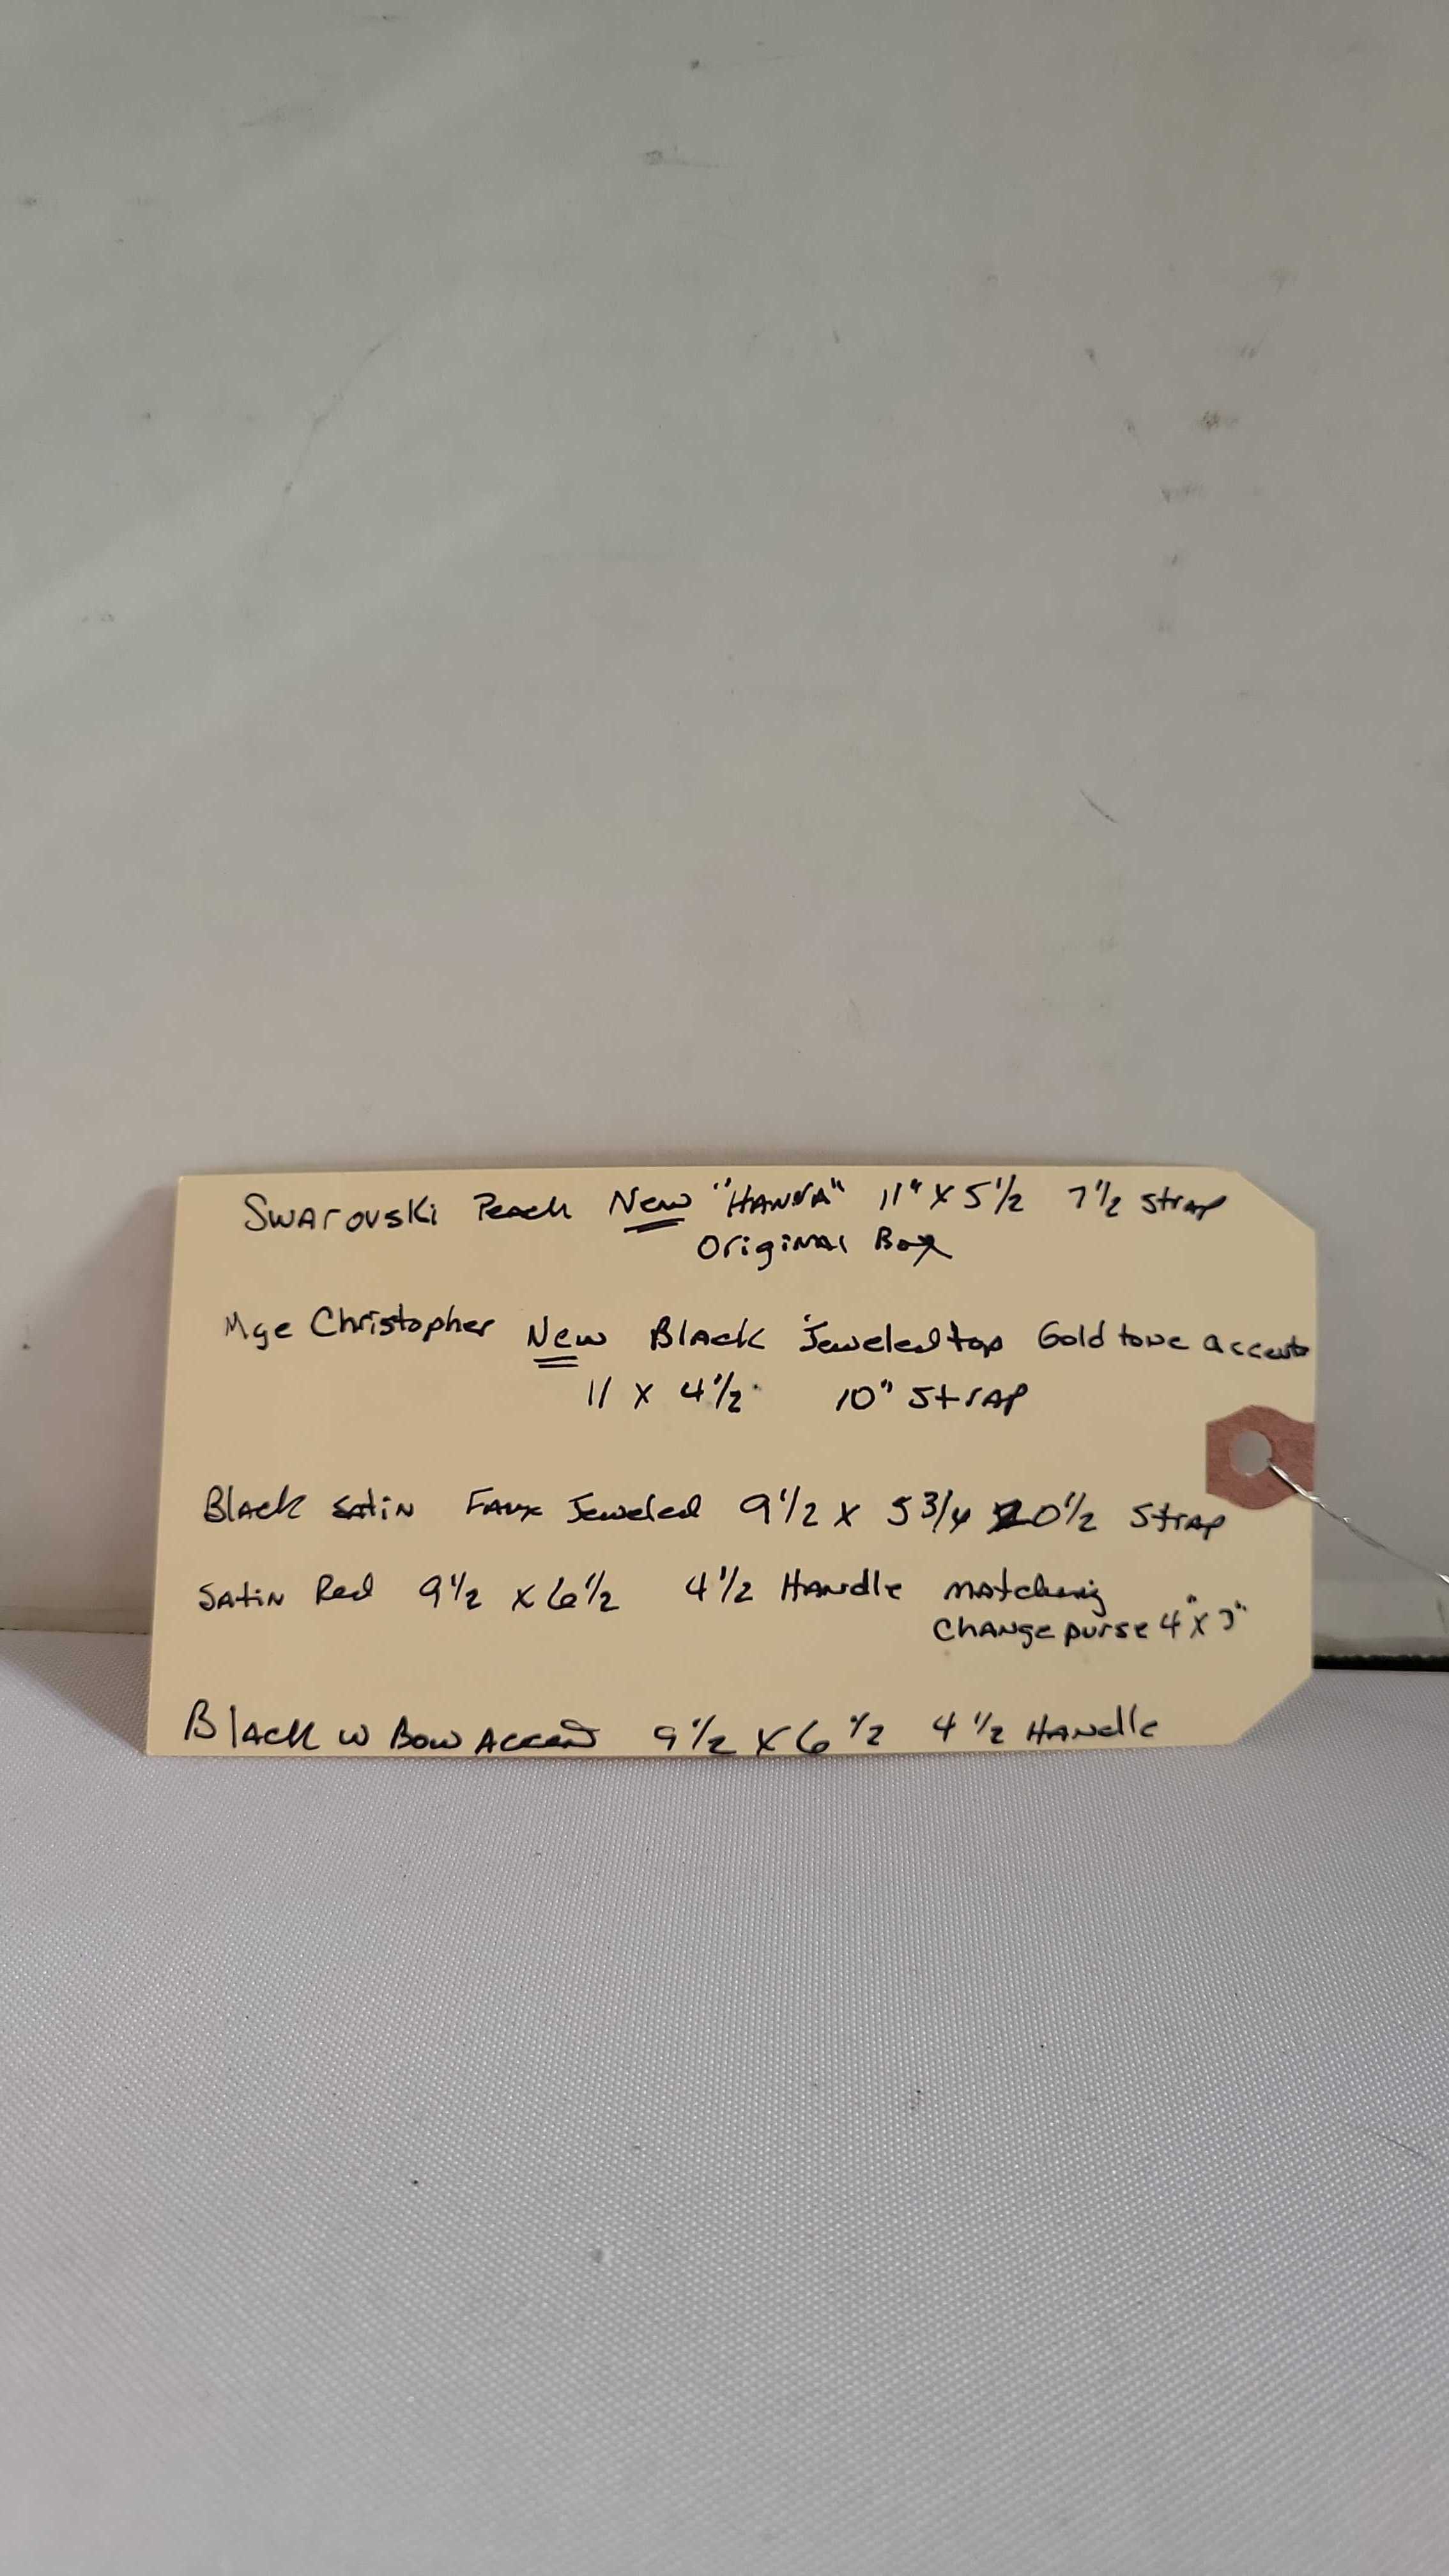 Swarovski Peach New "HANNA" 11" X 5 1/2 7 1/2 strap
Original Box
Mge Christopher New Black Jeweled top Gold tone accents
11 X 4 1/2 10" STRAP
Black Satin Faux Jeweled 9 1/2 X 5 3/4 20 1/2 Strap
Satin Red 9 1/2 X 6 1/2 4 1/2 Handle matching
Change purse 4" X 3"
Black w Bow Accent 9 1/2 X 6 1/2 4 1/2 Handle